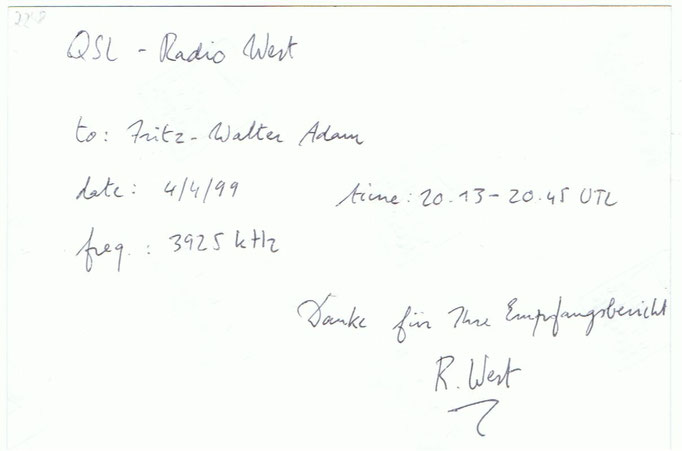 QSL - Radio West
to: Fritz-Walter Adam
date: 4/4/99 time: 20.13-20.45 UTC
freq.: 3925 kHz
Danke für Ihre Empfangsbericht
R. West